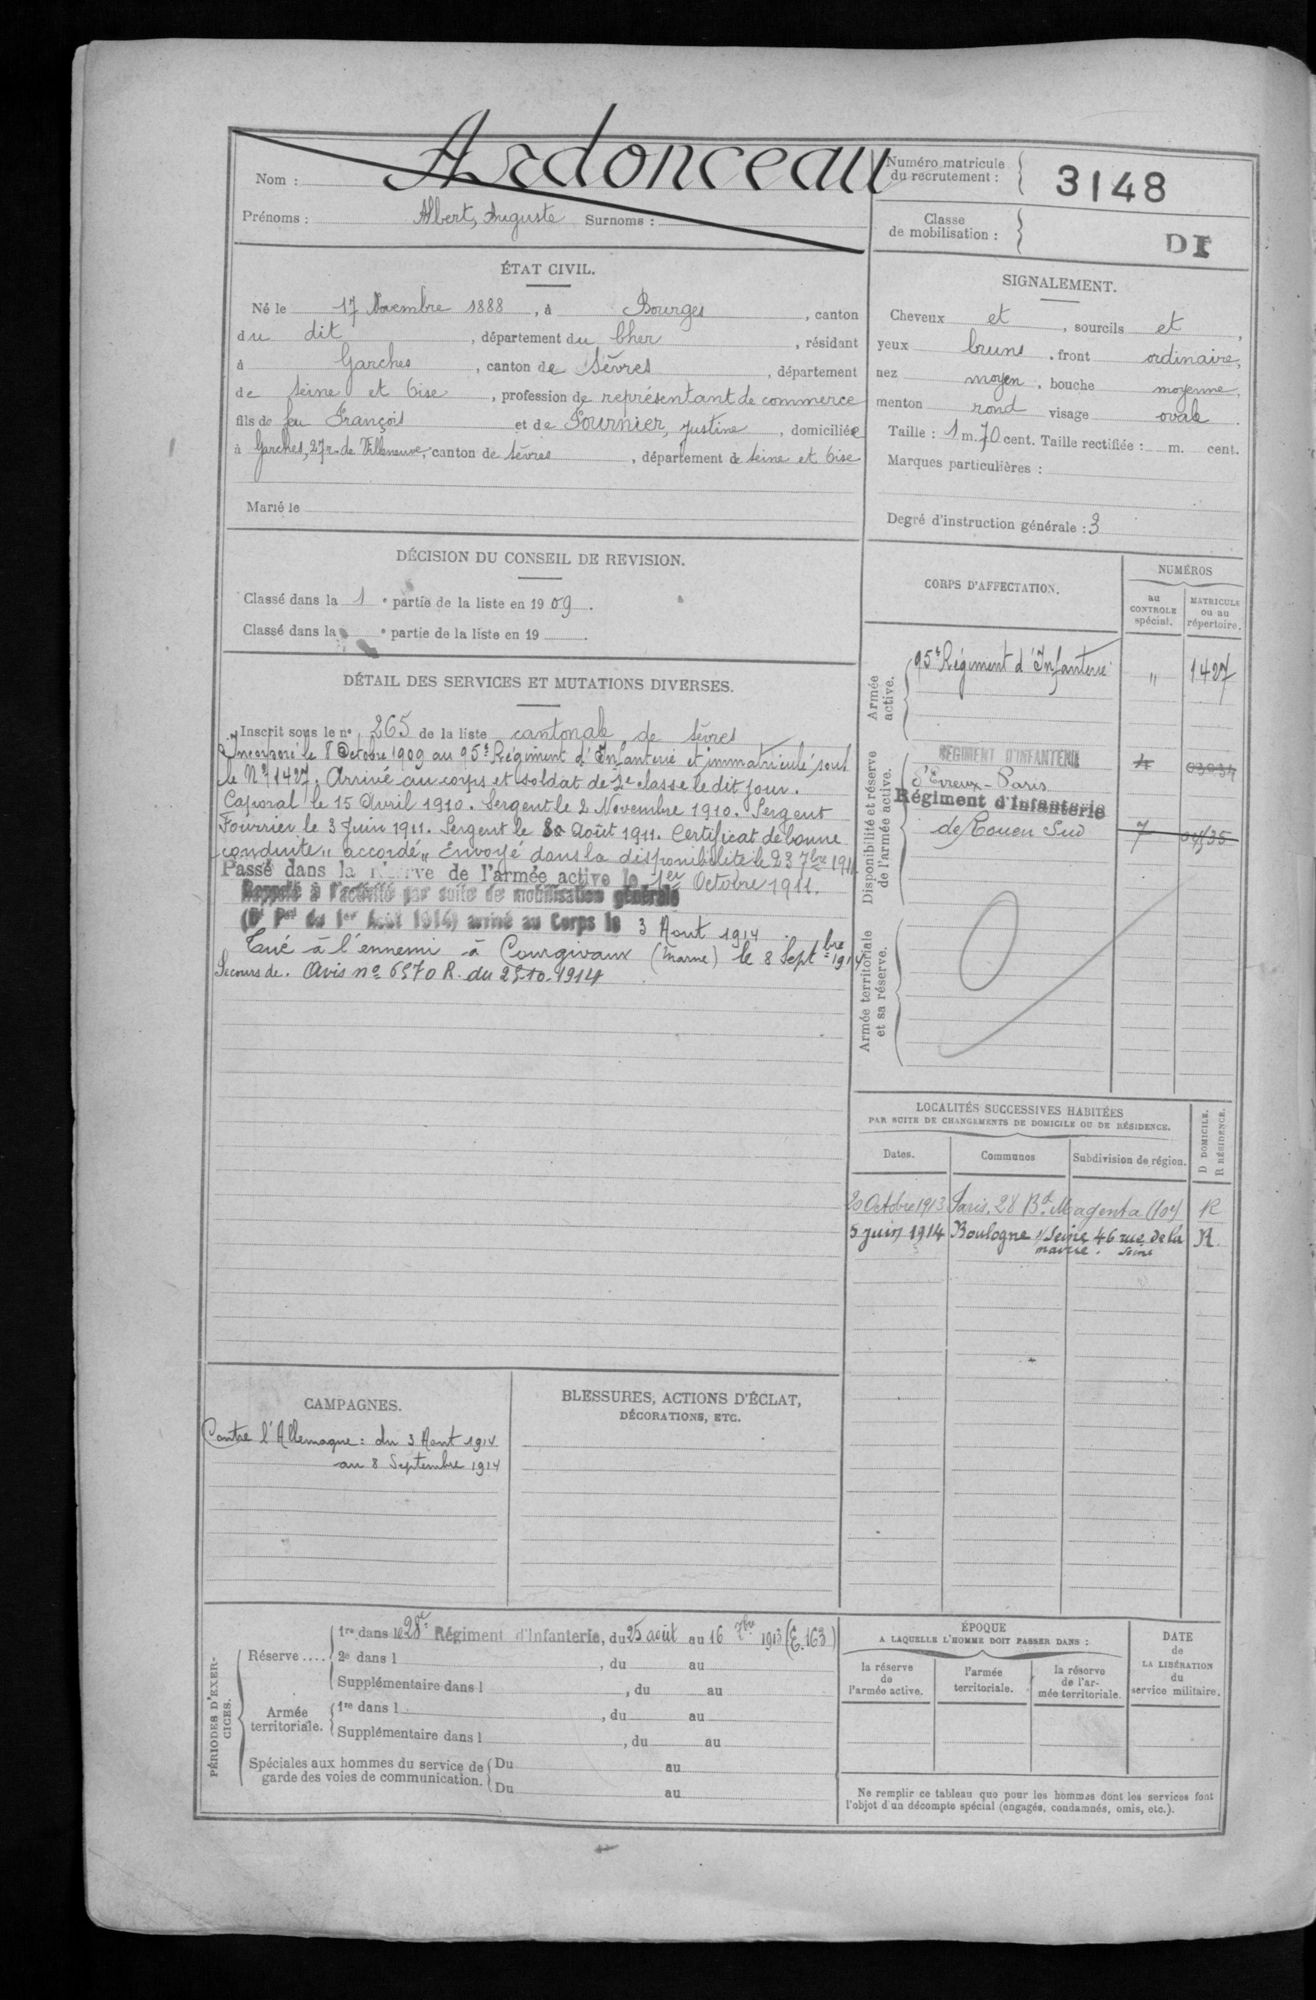 Nom : Ardonceau
Prénoms : Albert, Auguste Surnoms :
Numéro matricule du recrutement : 3148
Classe de mobilisation :
ÉTAT CIVIL.
Né le 17 Novembre 1888, à Bourges, canton
du dit, département du Cher, résidant
à Garches, canton de Sèvres, département
de Seine et Oise, profession de représentant de commerce
fils de feu François et de Fournier, Justine, domiciliée
à Garches, 27 r. de Villeneuve, canton de Sèvres, département de Seine et Oise
Marié le
SIGNALEMENT.
Cheveux et, sourcils et,
yeux bruns, front ordinaire,
nez moyen, bouche moyenne,
menton rond visage ovale.
Taille : 1 m. 70 cent. Taille rectifiée : m. cent.
Marques particulières :
Degré d'instruction générale : 3
DÉCISION DU CONSEIL DE REVISION.
Classé dans la 1e partie de la liste en 1909.
Classé dans la e partie de la liste en 19 .
DÉTAIL DES SERVICES ET MUTATIONS DIVERSES.
Inscrit sous le no 265 de la liste cantonale de Sèvres
Incorporé le 8 Octobre 1909 au 95e Régiment d'Infanterie et immatriculé sous
le No 1427. Arrivé au corps et soldat de 2e classe le dit jour.
Caporal le 15 Avril 1910. Sergent le 2 Novembre 1910. Sergent
Fourrier le 3 Juin 1911. Sergent le Août 1911. Certificat de bonne
conduite "accordé" Envoyé dans la disponibilité le 23 7bre 1911
Passé dans la réserve de l'armée active le 1er Octobre 1911.
Rappelé à l'activité par suite de mobilisation générale
(Dt Pel du 1er Août 1914) arrivé au Corps le 3 Aout 1914
Tué à l'ennemi à Courgivaux (Marne) le 8 Septbre 1914
Secours de. Avis no 6570 R. du 2510-1914
CORPS D'AFFECTATION.
NUMÉROS
au CONTROLE spécial.
MATRICULE ou au répertoire.
Armée active.
95e Régiment d'Infanterie " 1427
Disponibilité et réserve de l'armée active.
REGIMENT D'INFANTERIE
d'Evreux-Paris
Régiment d'Infanterie
de Rouen Sud 7
Armée territoriale et sa réserve.
LOCALITÉS SUCCESSIVES HABITÉES
PAR SUITE DE CHANGEMENTS DE DOMICILE OU DE RÉSIDENCE.
Dates. Communes Subdivision de région. D DOMICILE. R RÉSIDENCE.
20 Octobre 1913 Paris, 28 Bd Magenta (10e) R
5 Juin 1914 Boulogne s/Seine 46 rue de la R.
mairie. Seine
CAMPAGNES.
Contre l'Allemagne : du 3 Aout 1914
au 8 Septembre 1914
BLESSURES, ACTIONS D'ÉCLAT,
DÉCORATIONS, ETC.
PÉRIODES D'EXERCICES.
Réserve....
1re dans le 28e Régiment d'Infanterie, du 25 août au 16 7bre 1913 (E. 163)
2e dans l , du au
Supplémentaire dans l , du au
Armée territoriale.
1re dans l , du au
Supplémentaire dans l , du au
Spéciales aux hommes du service de garde des voies de communication.
Du au
Du au
ÉPOQUE
A LAQUELLE L'HOMME DOIT PASSER DANS :
la réserve de l'armée active.
l'armée territoriale.
la réserve de l'armée territoriale.
DATE de LA LIBÉRATION du service militaire.
Ne remplir ce tableau que pour les hommes dont les services font
l'objet d'un décompte spécial (engagés, condamnés, omis, etc.).